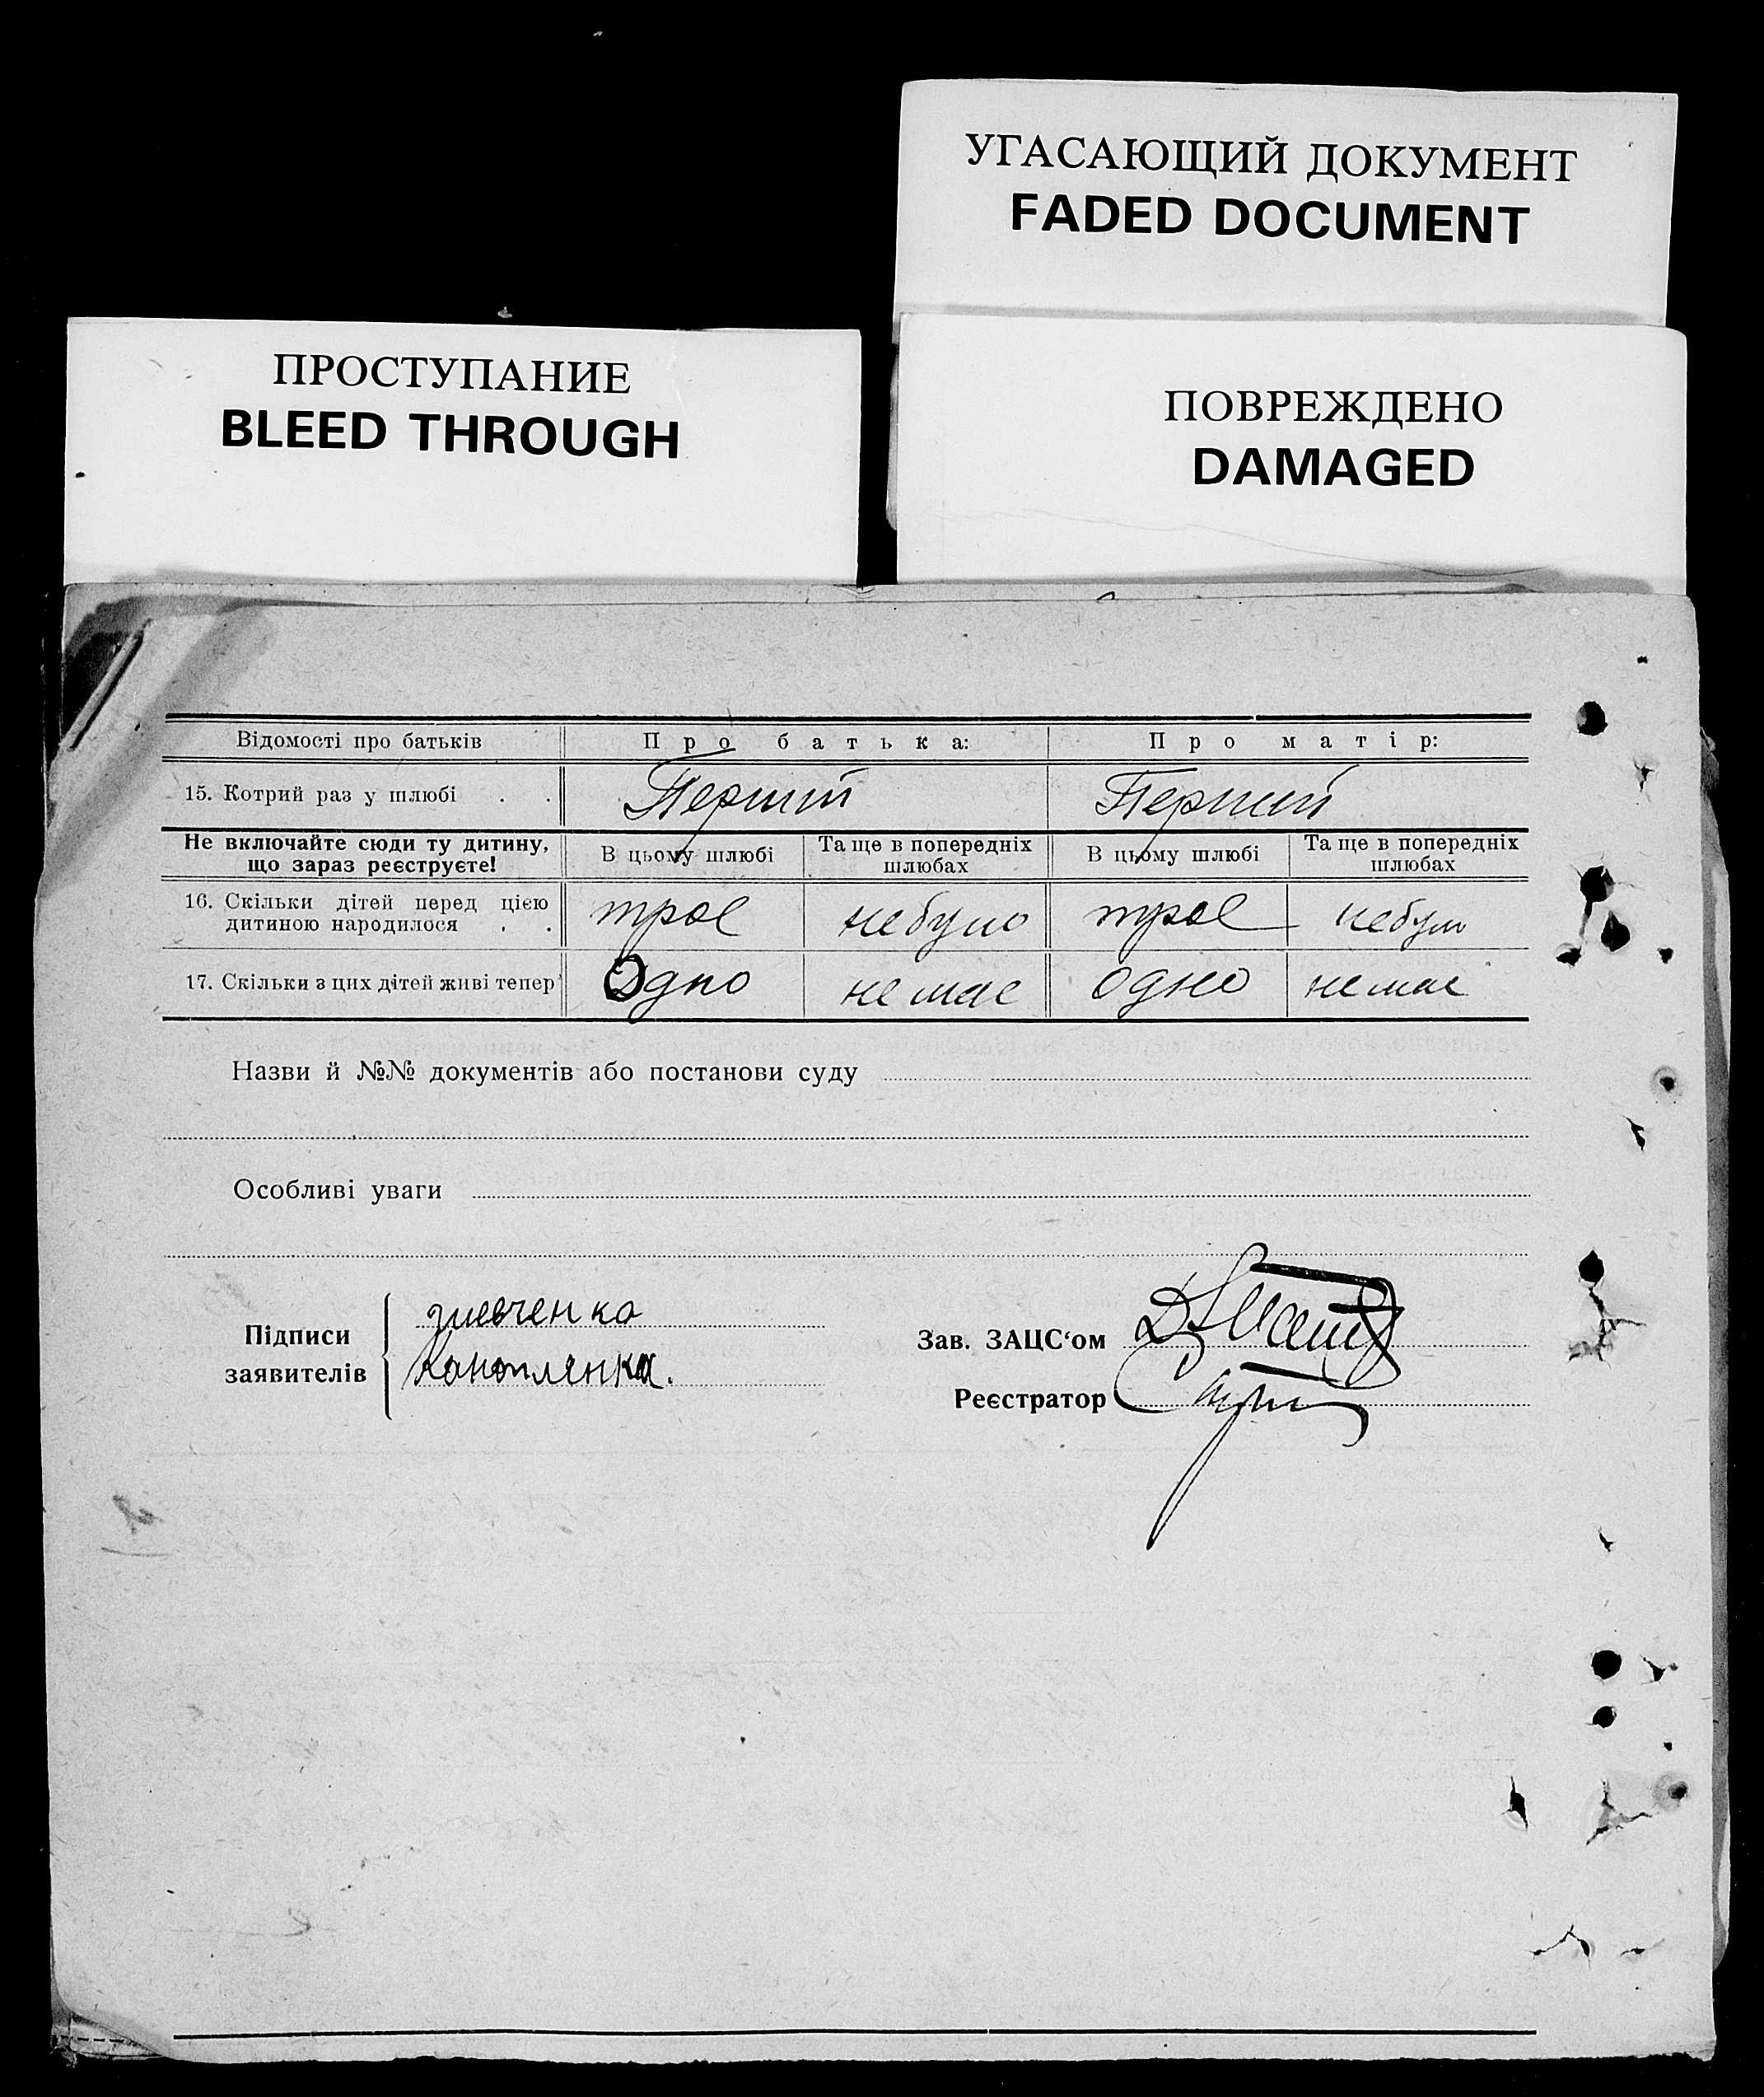 УГАСАЮЩИЙ ДОКУМЕНТ
FADED DOCUMENT
ПРОСТУПАНИЕ
BLEED THROUGH
ПОВРЕЖДЕНО
DAMAGED
Відомості про батьків Про батька: Про матір:
15. Котрий раз у шлюбі . . Перший Перший
Не включайте сюди ту дитину, що зараз реєструєте! В цьому шлюбі Та ще в попередніх шлюбах В цьому шлюбі Та ще в попередніх шлюбах
16. Скільки дітей перед цією
дитиною народилося . . троє небуло троє небуло
17. Скільки з цих дітей живі тепер Одно немає одно немає
Назви й №№ документів або постанови суду
Особливі уваги
Підписи
заявителів
Конопленка.
Зав. ЗАЦС‘ом
Реєстратор